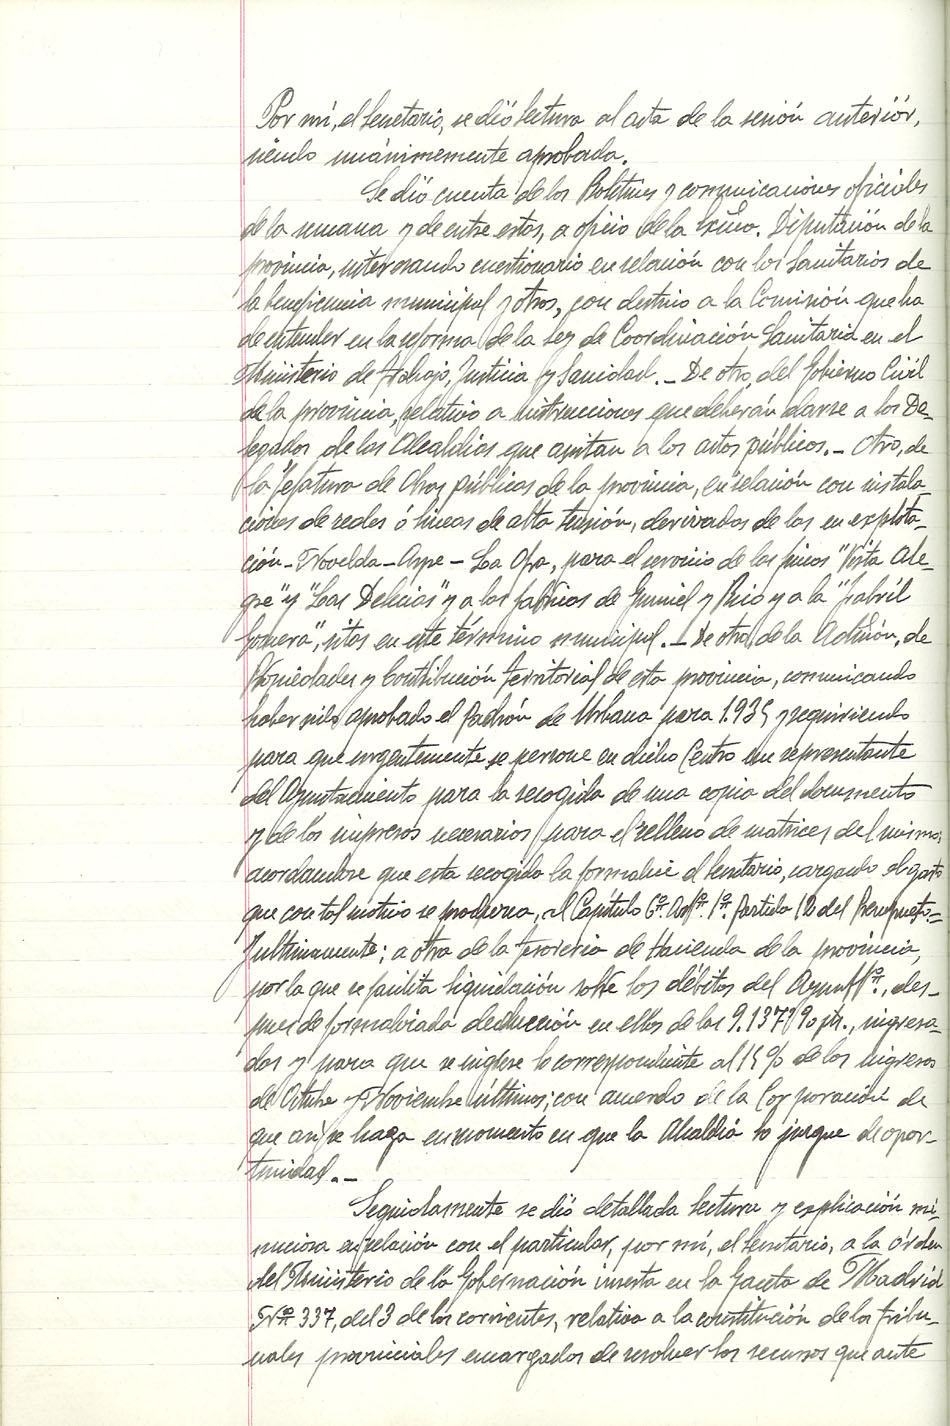 Por mí, el Secretario, se dió lectura al acta de la sesión anterior,
siendo unánimemente aprobada.
Se dió cuenta de los Boletines y comunicaciones oficiales
de la semana y de entre estos, a oficio de la Excma. Diputación de la
provincia, interesando cuestionario en relación con los Sanitarios de
la beneficencia municipal y otros, con destino a la Comisión que ha
de entender en la reforma de la Ley de Coordinación Sanitaria en el
Ministerio de Trabajo, Justicia y Sanidad. - De otro, del Gobierno Civil
de la provincia, relativo a instrucciones que deberán darse a los De-
legados de las Alcaldías que asistan a los actos públicos. - Otro, de
la Jefatura de Obras públicas de la provincia, en relación con instala-
ciones de redes ó líneas de alta tensión, derivadas de las en explota-
ción - Novelda - Aspe - La Ofra, para el servicio de las fincas "Vista Ale-
gre" y "Las Delicias" y a las fábricas de Gumiel y Rico y a la "Fabril
", sitas en este término municipal. - De otra, de la Admón. de
Propiedades y Contribución territorial de esta provincia, comunicando
haber sido aprobado el padrón de Urbana para 1.935 y requiriendo
para que urgentemente se persone en dicho Centro un representante
del Ayuntamiento para la recogida de una copia del documento
y de los impresos necesarios para el relleno de matrices del mismo,
acordándose que esta recogida la formalice el Secretario, cargando el gasto
que con tal motivo se produzca, al Capítulo 6º. Artº. 1º. Partida 12 del Presupuesto. =
Y ultimamente; a otra de la Tesorería de Hacienda de la provincia,
por la que se facilita liquidación sobre los débitos del Ayuntº., des-
pues de formalizada deducción en ellos de las 9.137'90 pts., ingresa-
das y para que se ingrese lo correspondiente al 15 % de los ingresos
de Octubre y Noviembre últimos; con acuerdo de la Corporación de
que así se haga en momento en que la Alcaldía lo juzgue de opor-
tunidad. -
Seguidamente se dió detallada lectura y explicación mi-
nuciosa en relación con el particular, por mí, el Secretario, a la órden
del Ministerio de la Gobernación inserta en la Gaceta de Madrid
Nº 337, del 3 de los corrientes, relativa a la constitución de los Tribu-
nales provinciales encargados de resolver los recursos que ante